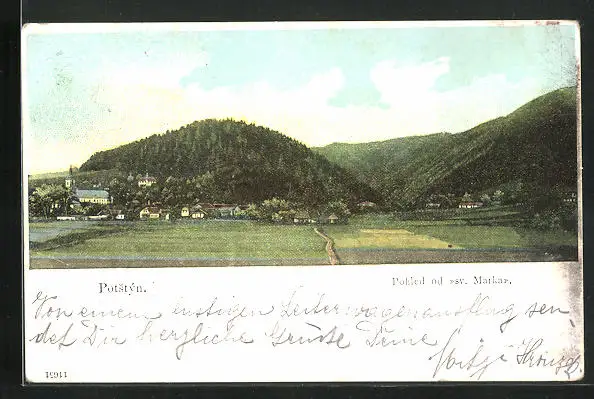 Potštýn.
Pohled od »sv. Marka«.
Von einem lustigen Leiterwagenausflug sen
det Dir herzliche Grüsse Deine
11911